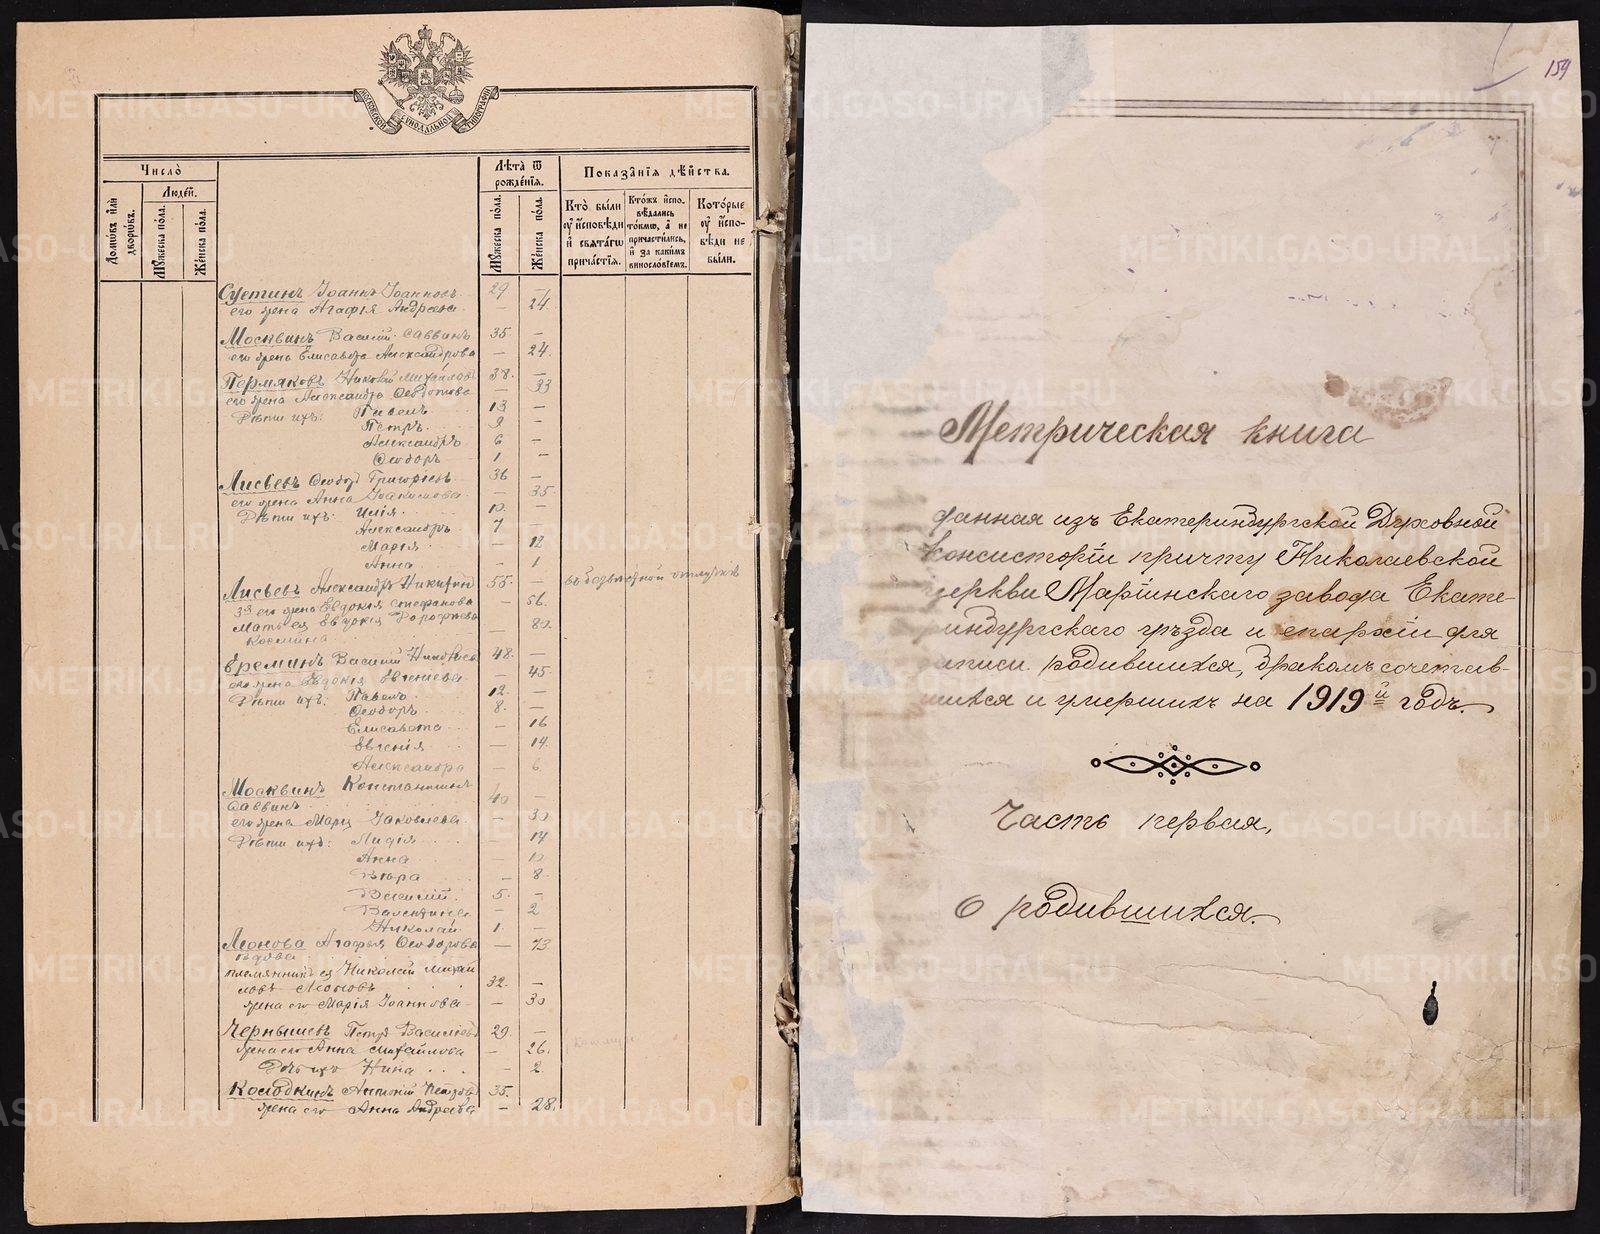 МОСКОВСКОЙ СѴНОДАЛЬНОЙ ТИПОГРАФІИ
Число̀
Людей.
Домѡвъ и҆лѝ дворѡвъ.
Мꙋжеска по́ла.
Же́нска по́ла.
Лѣта̀ ѿ рожде́нїѧ.
Мꙋжеска по́ла.
Же́нска по́ла.
Показа̑нїѧ дѣ́йства.
Кто̀ бы́ли ᲂу҆ и҆сповѣди и҆ свѧта́гѡ прича́стїѧ.
Кто́жъ и҆сповѣдались то́кмѡ, а҆ не причасти́лись, и҆ за каки́мъ винословїемъ.
Кото́рые ᲂу҆ и҆сповѣди не бы́ли.
Суетинъ Іоаннъ Іоанновъ 29 —
его жена Агафія Андреева — 24.
Москвинъ Василій Саввинъ 35. —
его жена Елисавета Александрова — 24.
Пермяковъ Николай Михайловъ 38. —
его жена Александра Ѳеодотова — 33
Дѣти ихъ: Павелъ 13 —
Петръ 9 —
Александръ 6 —
Ѳеодоръ 1 —
Лисьевъ Ѳеодоръ Григоріевъ 36 —
его жена Анна — 35.
Дѣти ихъ: Илія 10. —
Александръ 7
Марія — 12
Анна — 1
Лисьевъ Александръ Никитинъ 55. — въ отлучкѣ
его жена Евдокія Стефанова — 56.
Мать ея Евдокія Дорофѣева — 80.
Космина
Ереминъ Василій 48. —
его жена Евдокія Евгеніева — 45
Дѣти ихъ: Павелъ 12. —
Ѳеодоръ 8. —
Елисавета — 16
Евгенія — 14.
Александра — 6
Москвинъ Константинъ
Саввинъ 40 —
его жена Марія Іаковлева — 30
Дѣти ихъ: Лидія — 14
Анна — 10
— 8.
Василій 5. —
Валентина — 2
Николай 1. —
Леонова Агафья Ѳеодорова — 73.
вдова
племянникъ ея Николай Михай
ловъ Леоновъ 32. —
жена его Марія Іоаннова — 30
Чернышевъ Петръ Васильевъ 29. —
жена его Анна Михайлова — 26.
Дочь ихъ Нина — 2
Колодкинъ Антоній Петровъ 35.
жена его Анна Андреева — 28.
159
Метрическая книга
данная изъ Екатеринбургской Духовной
Консисторіи причту Николаевской
церкви Маріинскаго завода Екате-
ринбургскаго уѣзда и епархіи для
записи родившихся, бракомъ сочетав-
шихся и умершихъ на 1919й годъ.
Часть первая,
О родившихся.
METRIKI.GASO-URAL.RU